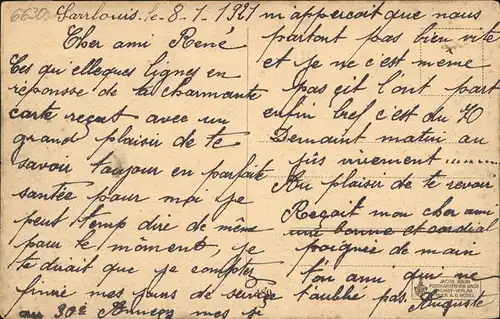 6630
Sarrlouis. le 8/1/1921
Cher ami René
Ces qu'elleques lignes en
réponsse de ta charmante
carte reçut avec un
grand plaisir de te
savoir toujour en parfaite
santée pour moi je
peut temp dire de même
pour te môment, je
te dirait que je comptez
finire mes jours de service
au 30e mes si
m'apperçoit que nous
partont pas bien vite
et je ne c'est meme
pas ont part
enfin bref c'est du 40
Demaint matin au
jus vivement ........
Au plaisir de te revoir
Reçoit mon cher ami
une bonne et cordial
poignée de main
t'on ami qui ne
t'oublie pas. Auguste